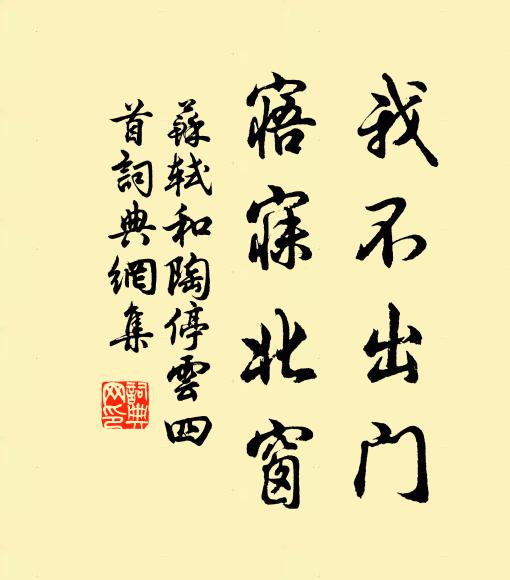 我不出门
寤寐北窗
蘇軾和陶停雲四
首詞典網集
詞典
网印